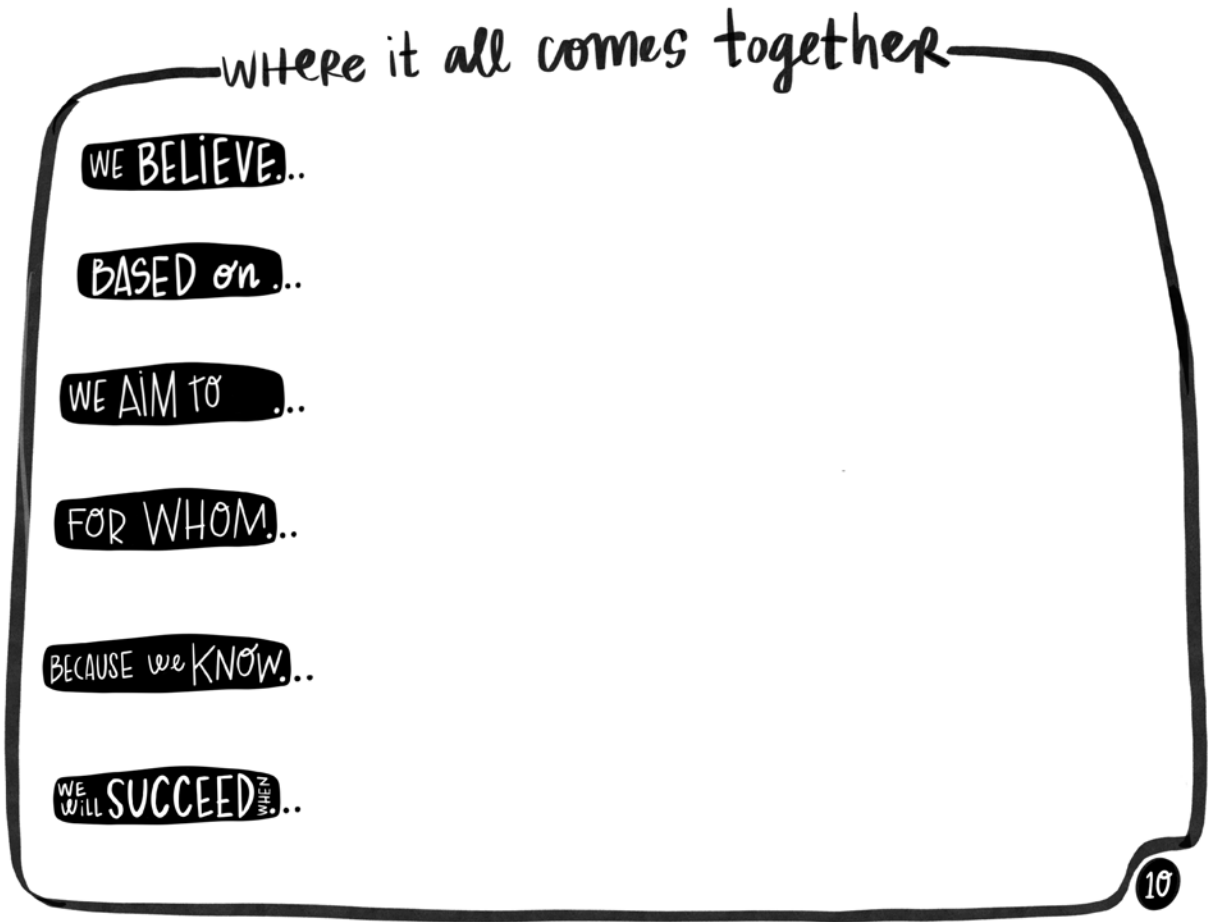 WHERE it all comes together
WE BELIEVE...
BASED on...
WE AIM TO ...
FOR WHOM...
BECAUSE we KNOW...
WE WILL SUCCEED WHEN...
10